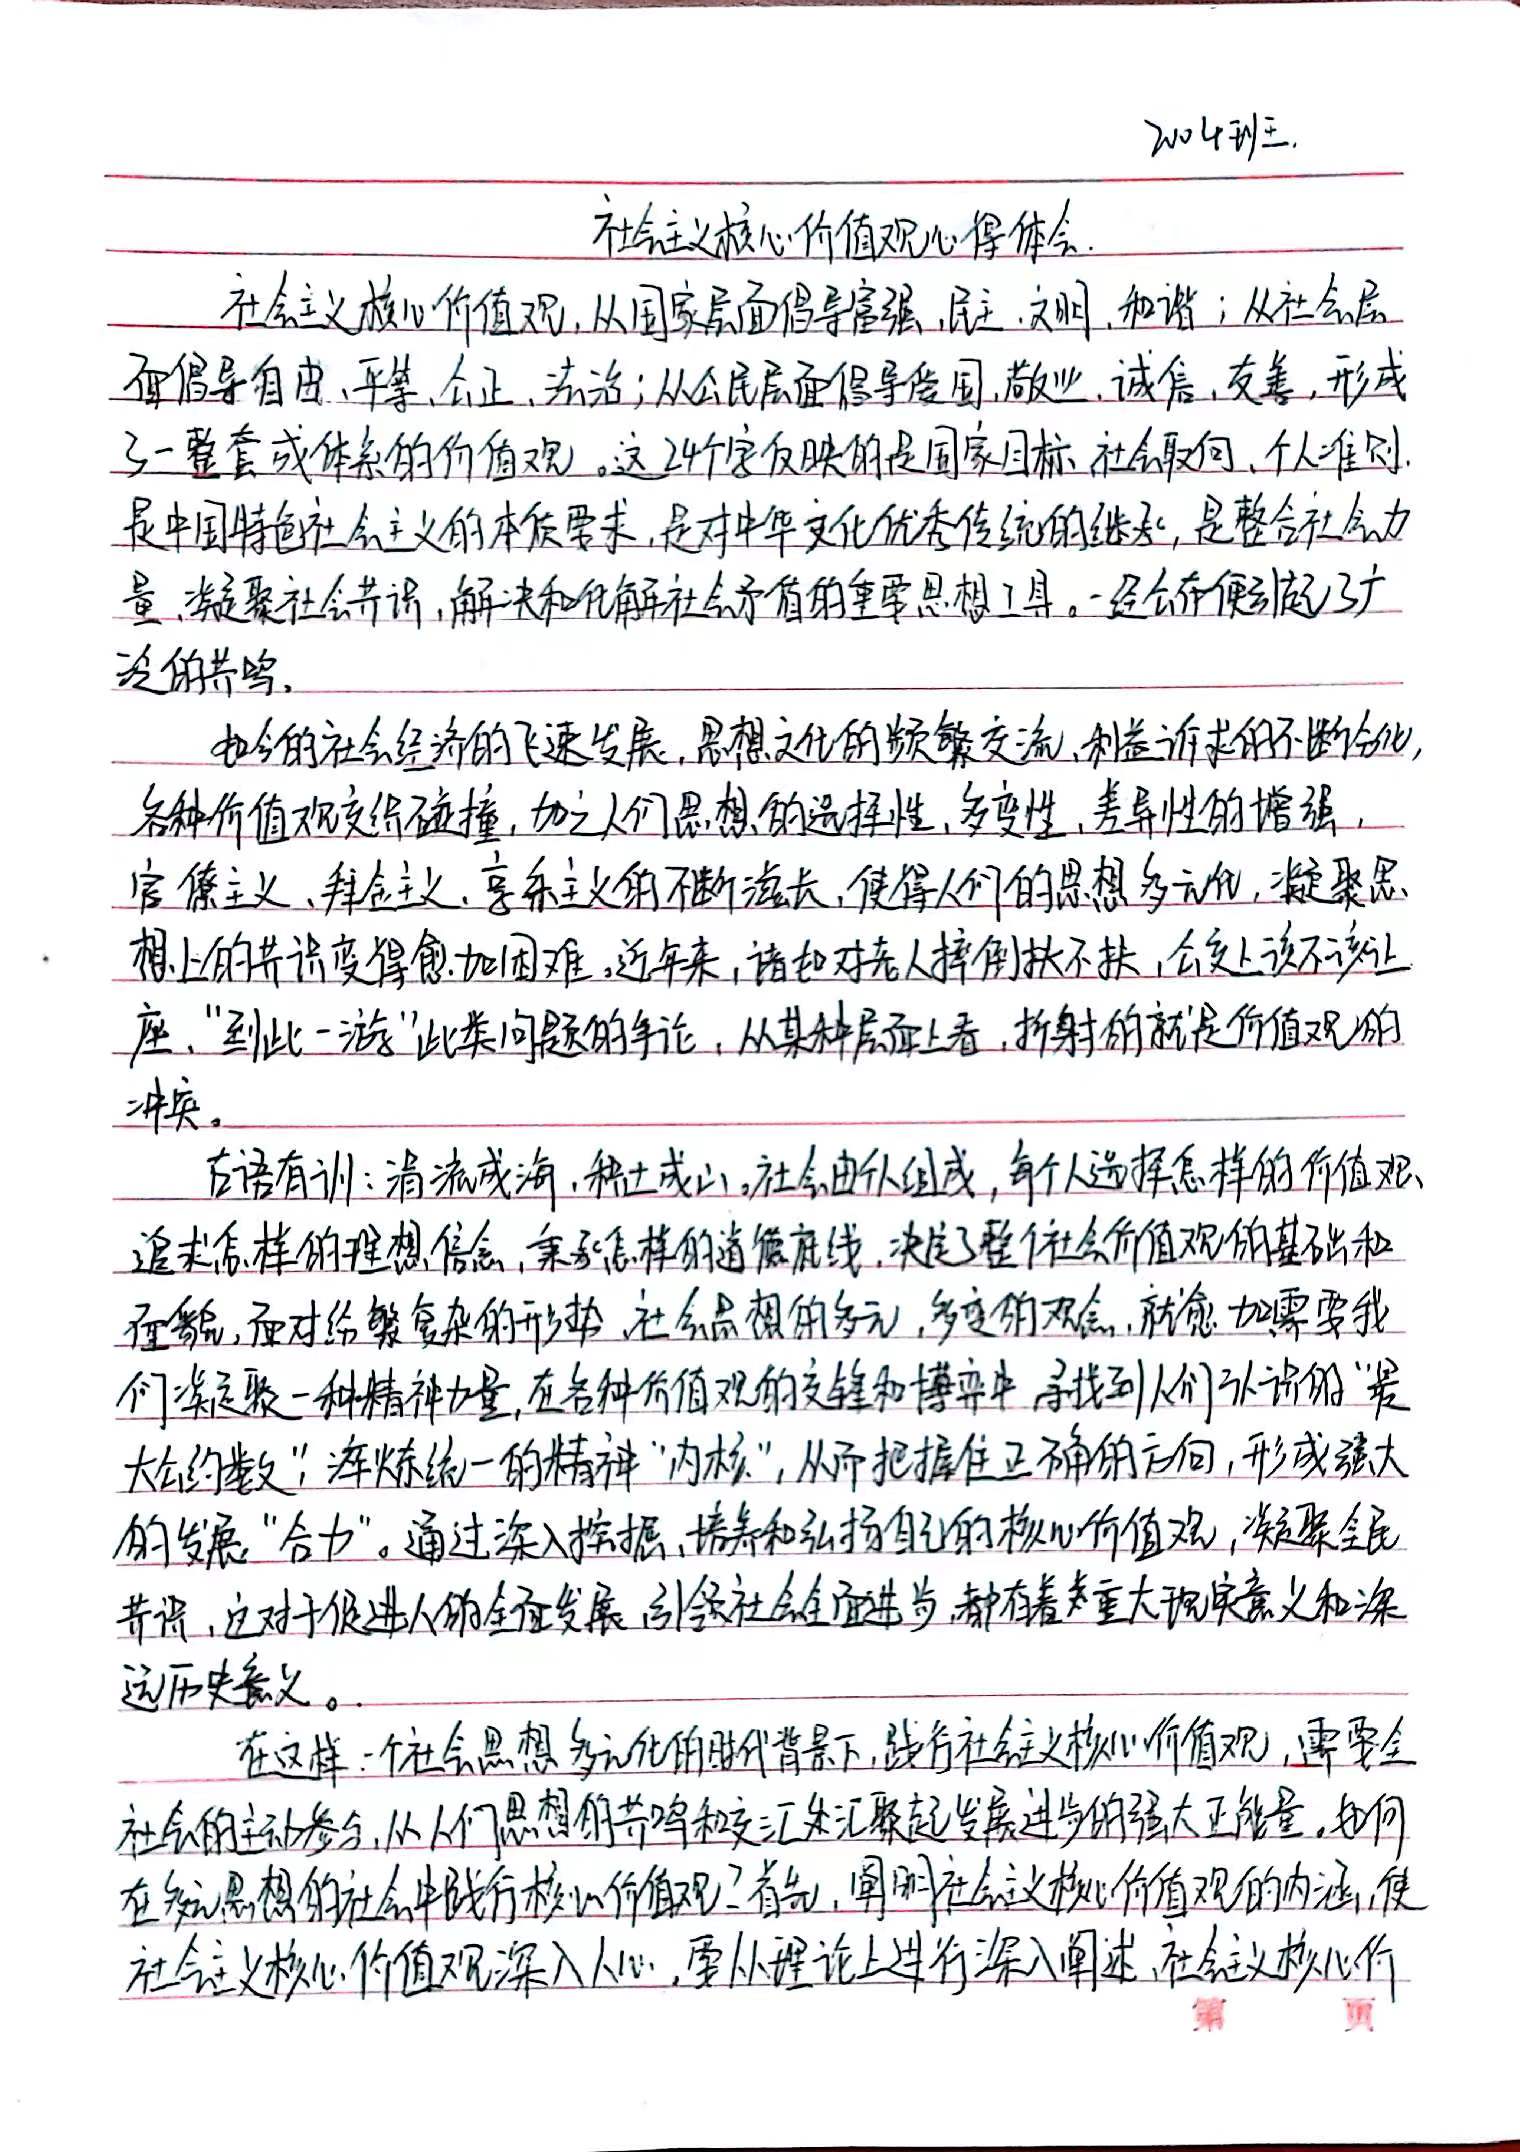 2004班王.
社会主义核心价值观心得体会.
社会主义核心价值观,从国家层面倡导富强、民主、文明、和谐;从社会层
面倡导自由、平等、公正、法治;从公民层面倡导爱国、敬业、诚信、友善,形成
了一整套成体系的价值观。这24个字反映的是国家目标、社会取向、个人准则.
是中国特色社会主义的本质要求,是对中华文化优秀传统的继承,是整合社会力
量、凝聚社会共识,解决和化解社会矛盾的重要思想工具。一经公布便引起了广
泛的共鸣。
如今的社会经济的飞速发展,思想文化的频繁交流、利益诉求的不断分化,
各种价值观交织碰撞,加之人们思想的选择性、多变性、差异性的增强,
官僚主义、拜金主义、享乐主义的不断滋长,使得人们的思想多元化,凝聚思
想上的共识变得愈加困难。近年来,诸如对老人摔倒扶不扶,公交上该不该让
座、"到此一游"此类问题的争论,从某种层面上看,折射的就是价值观的
冲突。
古语有训:涓流成海,积土成山。社会由个人组成,每个人选择怎样的价值观、
追求怎样的理想信念,秉承怎样的道德底线,决定了整个社会价值观的基础和
面貌,面对纷繁复杂的形势、社会思想的多元,多变的观念,就愈加需要我
们凝聚一种精神力量,在各种价值观的交锋和博弈中寻找到人们认识的"最
大公约数",淬炼统一的精神"内核",从而把握住正确的方向,形成强大
的发展"合力"。通过深入挖掘、培养和弘扬自己的核心价值观,凝聚全民
共识,这对于促进人的全面发展、引领社会全面进步,都有着重大现实意义和深
远历史意义。
在这样一个社会思想多元化的时代背景下,践行社会主义核心价值观,需要全
社会的主动参与,从人们思想的共鸣和交汇处汇聚起发展进步的强大正能量。如何
在多元思想的社会中践行核心价值观?首先,阐明社会主义核心价值观的内涵,使
社会主义核心价值观深入人心,要从理论上进行深入阐述、社会主义核心价
第 页